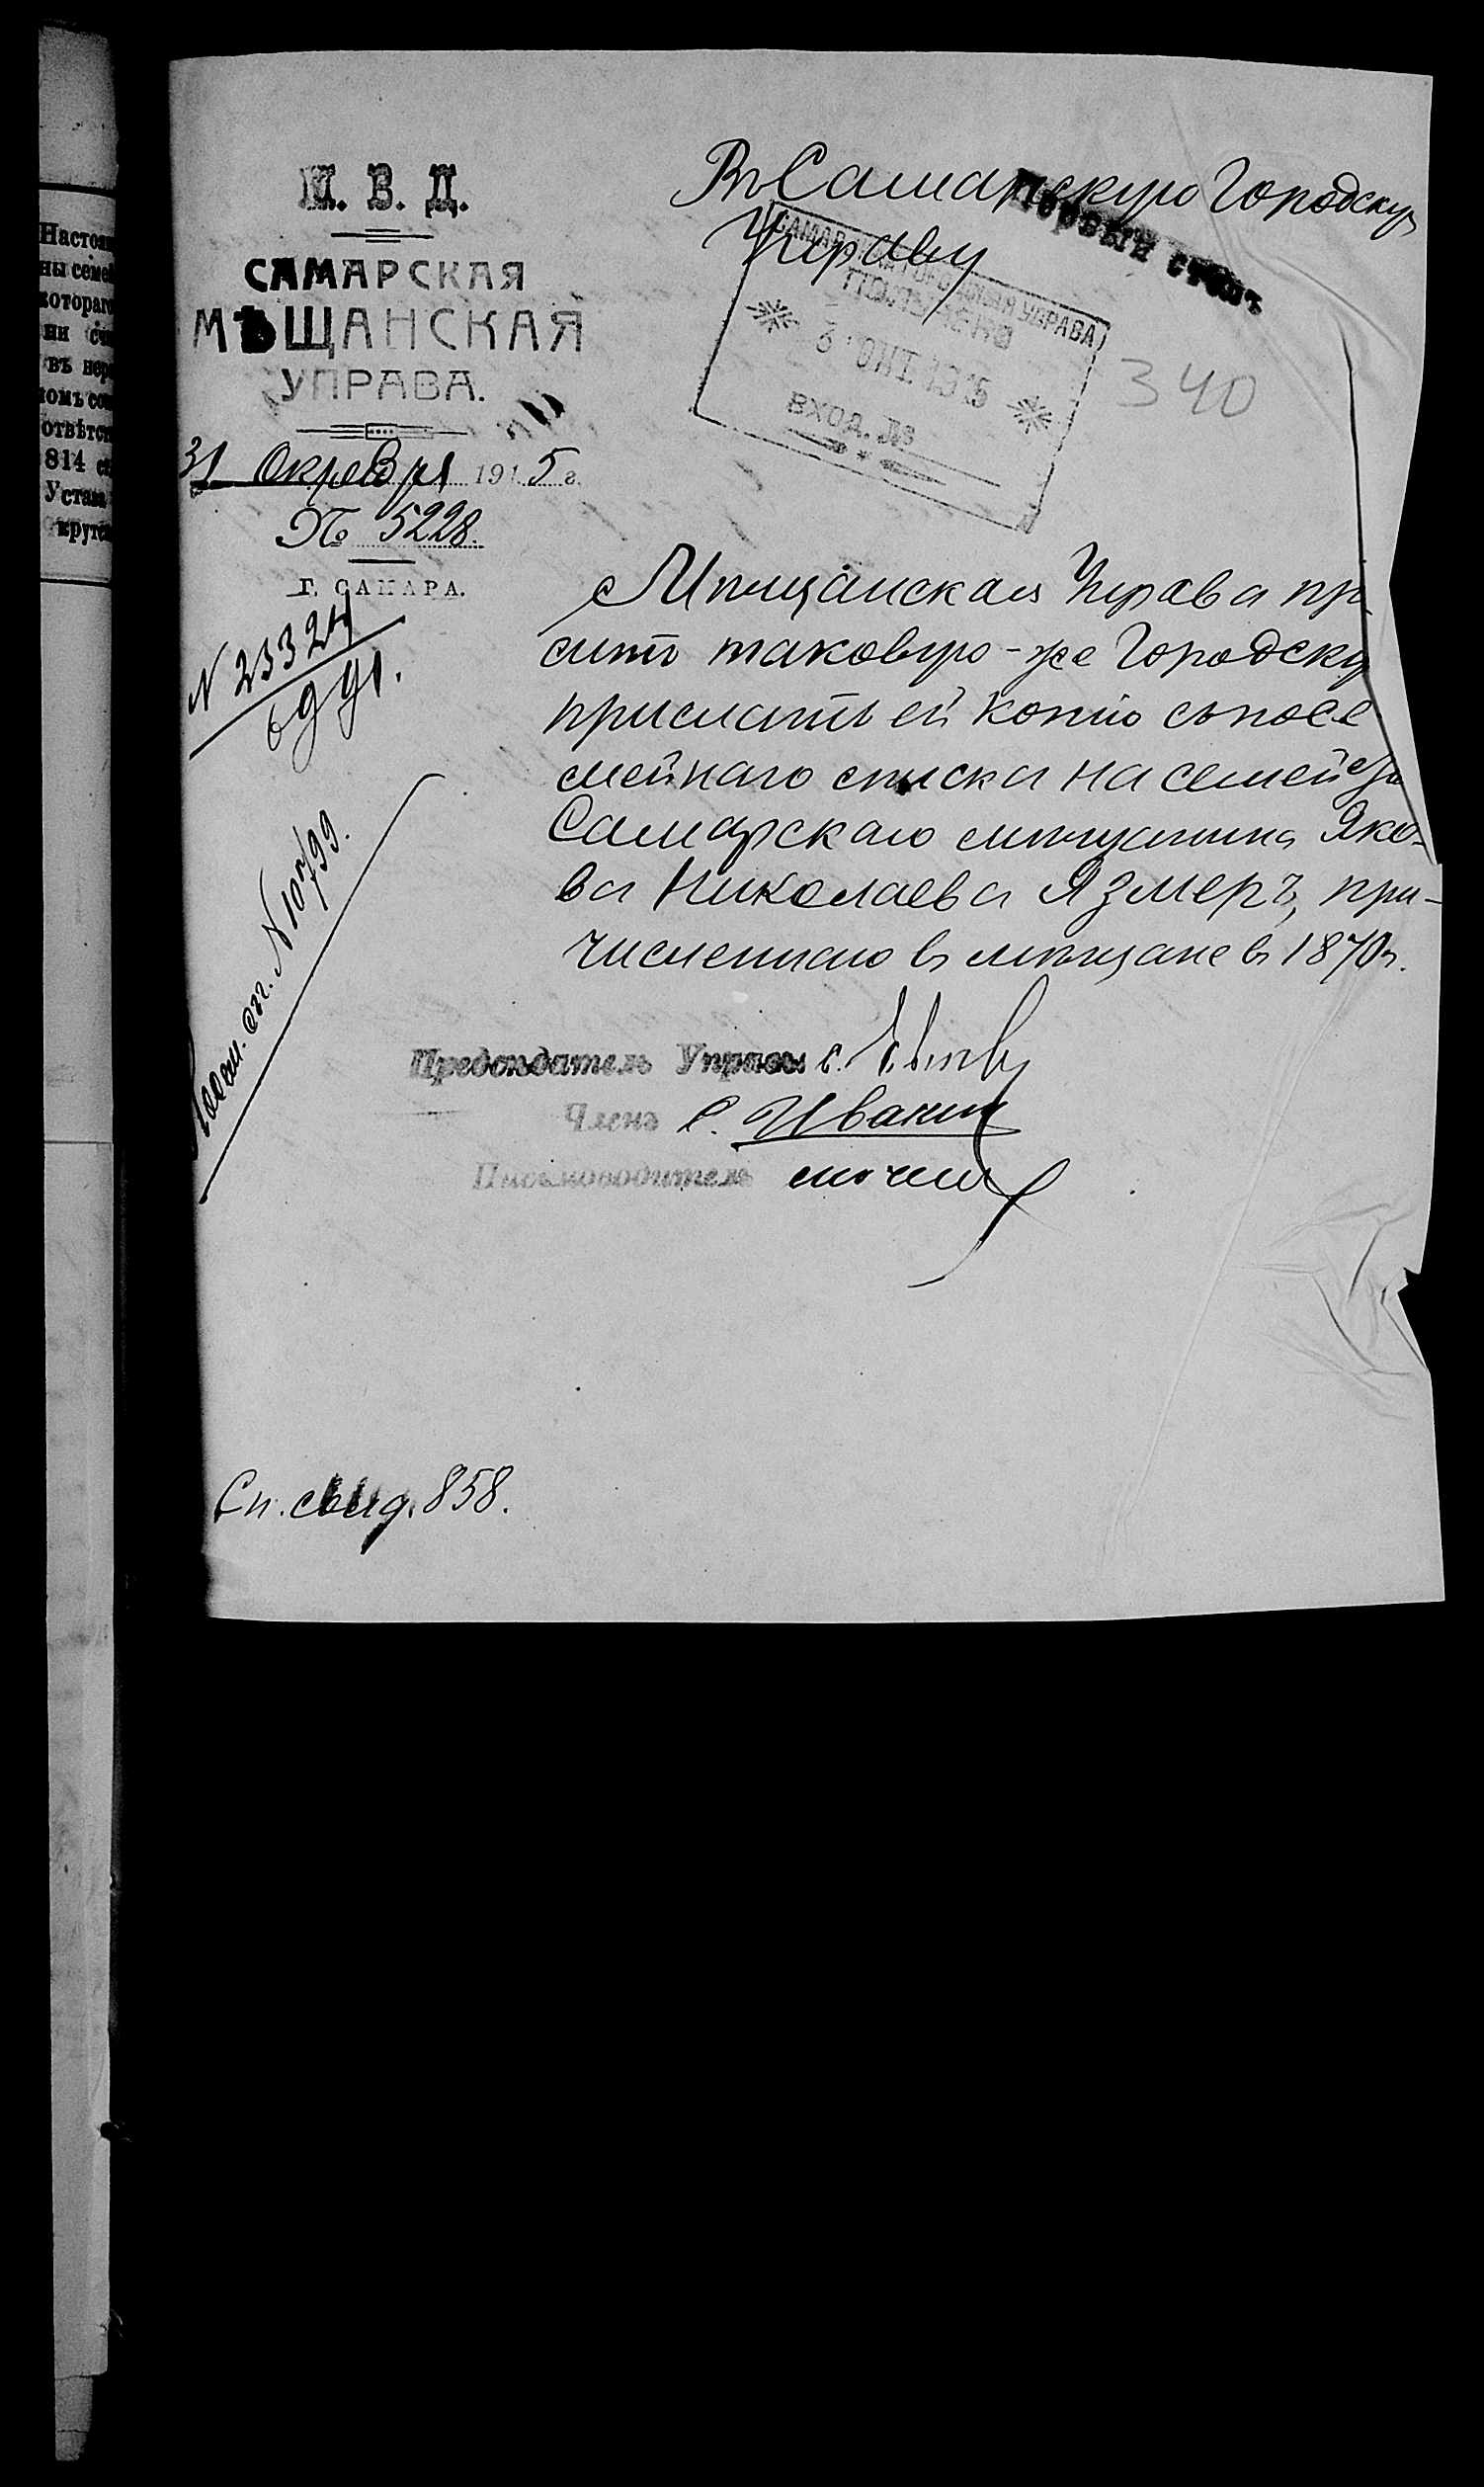 Настоя
ны семе
котораг
ни
въ
омъ со
отвѣтс
814 с
Уста
круте
М. В. Д.
САМАРСКАЯ
МѢЩАНСКАЯ
УПРАВА.
31 Октября 1915 г.
№ 5228.
Г. САМАРА.
Въ Самарскую Городскую
Управу
Первый столъ
САМАРСКАЯ ГОРОДСКАЯ УПРАВА
ПОЛУЧЕНО
ОКТ. 1915
ВХОД. №
340
N 23324
N 10799.
Мѣщанская Управа про
ситъ таковую-же Городску
прислать ей копію съ посе
мейнаго списка на семейство
Самарскаго мѣщанина Яко-
ва Николаева Язмеръ, при-
численнаго въ мѣщане въ 1870 г.
Предсѣдатель Управы
Членъ С. Ивакин
Письмоводитель
Сп. 858.